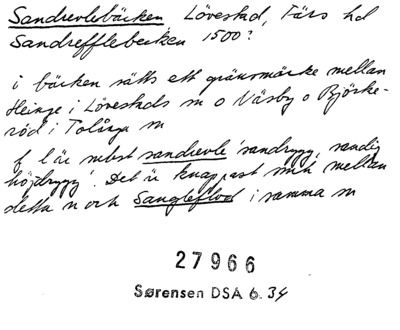 Sandrevlebäcken, Lövestad, Färs hd
Sandrefflebecken 1500?
i bäcken sätts ett gränsmärke mellan
Heinge i Lövestads sn o Väsby o Björke-
röd i Tolånga sn
f l är subst sandrevle 'sandrygg, sandig
höjdrygg'. Det är knappast mellan
detta n och Sangleflod i samma sn
27966
Sørensen DSÅ 6. 34